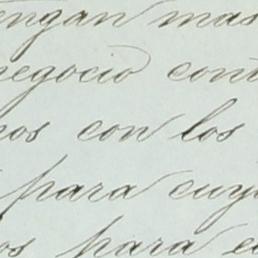 engan mas
negocio cont
nos con los
para cuy
os para e